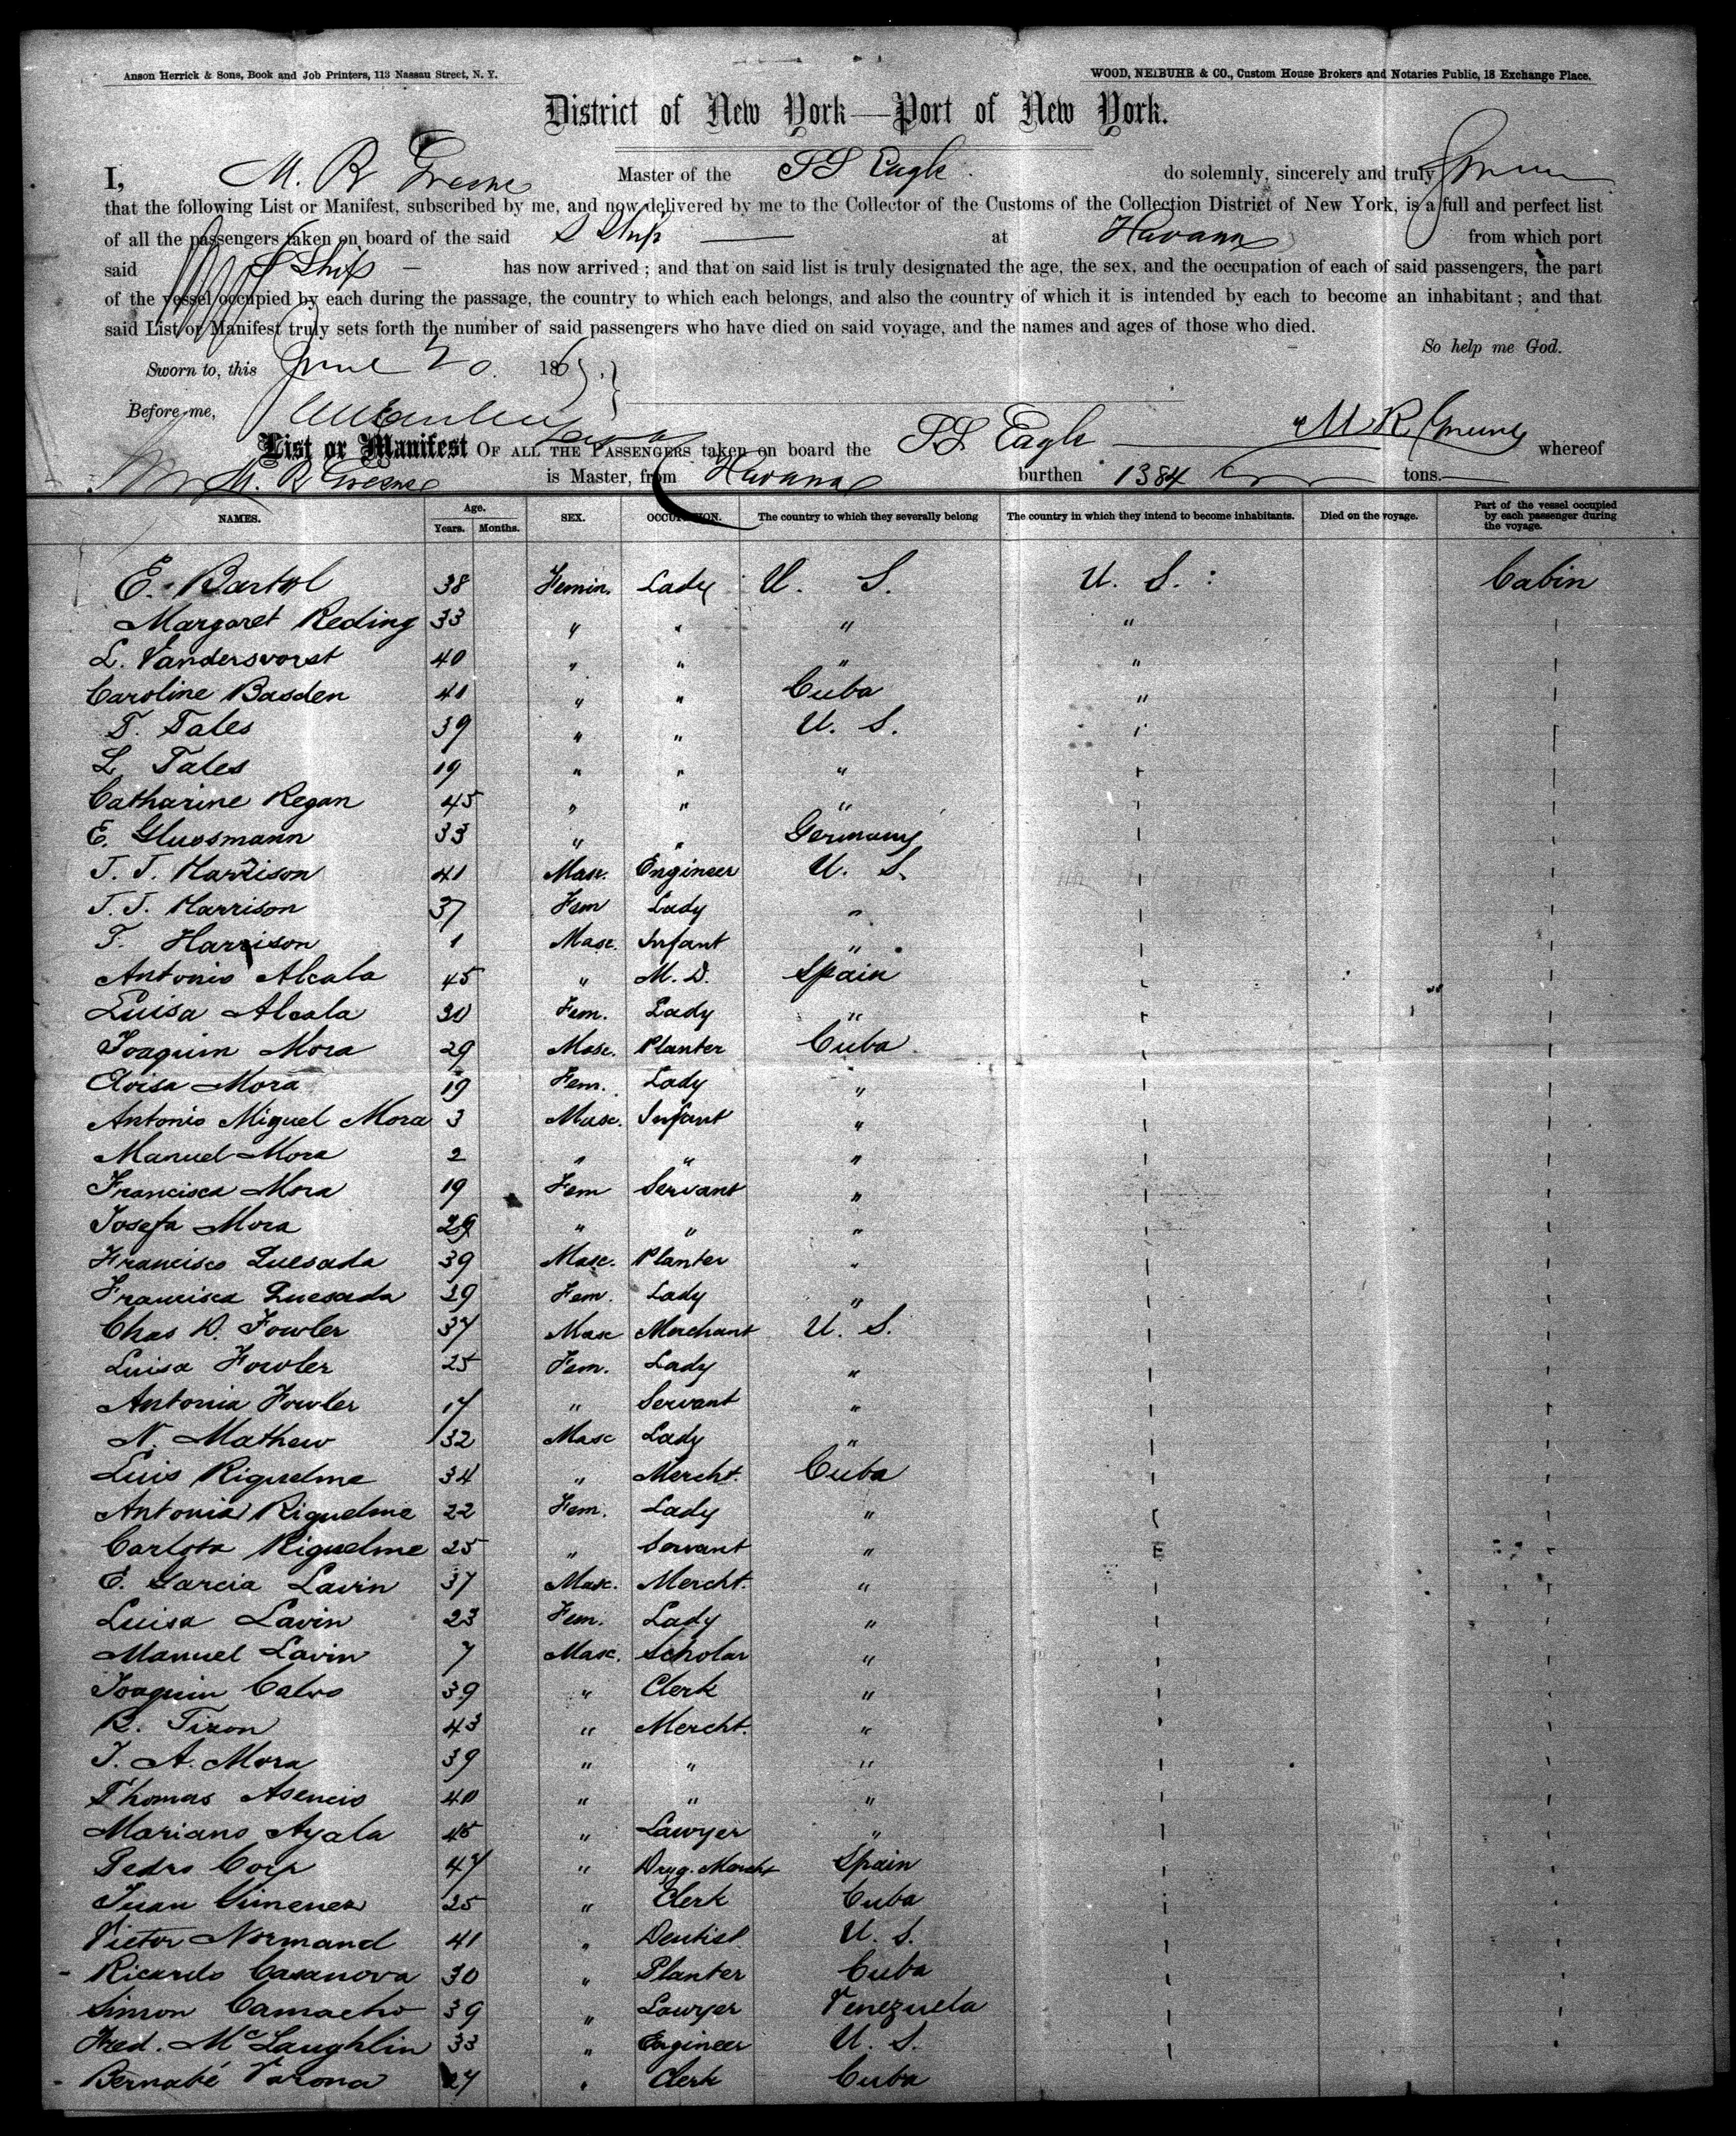 Anson Herrick & Sons, Book and Job Printers, 113 Nassau Street, N. Y. WOOD, NEIBUHR & CO., Custom House Brokers and Notaries Public, 18 Exchange Place.
District of New York—Port of New York.
I, M. R Greene Master of the SS Eagle do solemnly, sincerely and truly
that the following List or Manifest, subscribed by me, and now delivered by me to the Collector of the Customs of the Collection District of New York, is a full and perfect list
of all the passengers taken on board of the said S Ship — at Havana from which port
said S Ship — has now arrived ; and that on said list is truly designated the age, the sex, and the occupation of each of said passengers, the part
of the vessel occupied by each during the passage, the country to which each belongs, and also the country of which it is intended by each to become an inhabitant ; and that
said List or Manifest truly sets forth the number of said passengers who have died on said voyage, and the names and ages of those who died.
So help me God.
Sworn to, this June 20 186
Before me,
M R Greene
List or Manifest OF ALL THE PASSENGERS taken on board the SS Eagle whereof
M. R Greene is Master, from Havana burthen 1384 tons.
NAMES. Age. Years. Months. SEX. OCCUPATION. The country to which they severally belong The country in which they intend to become inhabitants. Died on the voyage. Part of the vessel occupied by each passenger during the voyage.
E. Bartol 38 Femin. Lady U. S. U. S. Cabin
Margaret Reding 33 " " " "
L. Vandersvorst 40 " " " "
Caroline Basden 41 " " Cuba "
T. Tales 39 " " U. S. "
L Tales 19 " " "
Catharine Regan 45 " " "
E. Glussmann 33 " " Germany
J. J. Harrison 41 Masc. Engineer U. S.
J. J. Harrison 37 Fem Lady "
T. Harrison 1 Masc. Infant "
Antonio Alcala 45 " M. D. Spain
Luisa Alcala 30 Fem. Lady "
Joaquim Mora 29 Masc. Planter Cuba
Eloisa Mora 19 Fem. Lady "
Antonio Miguel Mora 3 Masc. Infant "
Manuel Mora 2 " " "
Francisca Mora 19 Fem Servant "
Josefa Mora 29 " " "
Francisco Quesada 39 Masc. Planter "
Francisca Quesada 29 Fem. Lady "
Chas D. Fowler 37 Masc Merchant U. S.
Luisa Fowler 25 Fem. Lady "
Antonia Fowler 17 " Servant "
N. Mathew 32 Masc Lady "
Luis Riguelme 34 " Mercht. Cuba
Antonia Riguelme 22 Fem. Lady "
Carlota Riguelme 25 " Servant "
E. Garcia Lavin 37 Masc. Mercht. "
Luisa Lavin 23 Fem. Lady "
Manuel Lavin 7 Masc. Scholar "
Joaquin Calvo 39 " Clerk "
R. Tizon 43 " Mercht. "
J. A. Mora 39 " " "
Thomas Asencio 40 " " "
Mariano Ayala 45 " Lawyer "
Pedro 47 " Drug. Mercht Spain
Juan Gimenez 25 " Clerk Cuba
Victor Normand 41 " Dentist U. S.
Ricardo Casanova 30 " Planter Cuba
Simon Camacho 39 " Lawyer Venezuela
Fred. McLaughlin 33 " Engineer U. S.
Bernabé Varona 27 " Clerk Cuba